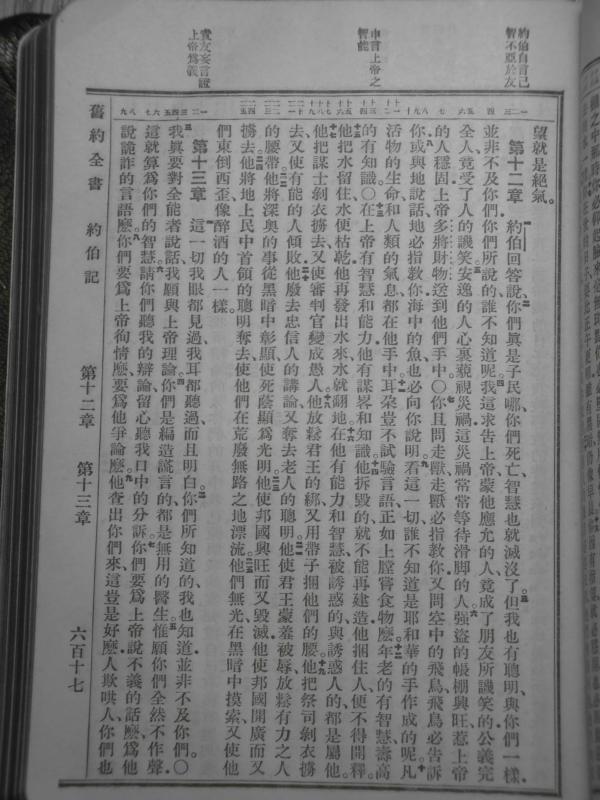 約伯自言己
智不亞於友
申言上帝之
智能
責友妄言證
上帝爲義
望就是絕氣。
第十二章 約伯回答說、你們眞是子民哪、你們死亡、智慧也就滅沒了。但我也有聰明、與你們一樣、
並非不及你們、你們所說的、誰不知道呢。我這求告上帝、蒙他應允的人、竟成了朋友所譏笑的、公義完
全人、竟受了人的譏笑。安逸的人心裏藐視災禍、這災禍常常等待滑脚的人。強盜的帳棚興旺、惹上帝
的人穩固、上帝多將財物送到他們手中。〇你且問走獸、走獸必指教你、又問空中的飛鳥、飛鳥必告訴
你。或與地說話、地必指教你、海中的魚也必向你說明。看這一切、誰不知道是耶和華的手作成的呢。凡
活物的生命、和人類的氣息、都在他手中。耳朶豈不試驗言語、正如上膛嘗食物麽。年老的有智慧、壽高
的有知識。〇在上帝有智慧和能力、他有謀畧和知識。他拆毀的、就不能再建造、他捆住人、便不得開釋。
他把水留住、水便枯乾、他再發出水來、水就翻地。在他有能力和智慧、被誘惑的、與誘惑人的、都是屬他。
他把謀士剝衣擄去、又使審判官變成愚人。他放鬆君王的綁、又用帶子捆他們的腰。他把祭司剝衣擄
去、又使有能的人傾敗。他廢去忠信人的講論、又奪去老人的聰明。他使君王蒙羞被辱、放鬆有力之人
的腰帶。他將深奧的事從黑暗中彰顯、使死蔭顯爲光明。他使邦國興旺而又毀滅、他使邦國開廣而又
擄去。他將地上民中首領的聰明奪去、使他們在荒廢無路之地漂流。他們無光、在黑暗中摸索、又使他
們東倒西歪、像醉酒的人一樣。
第十三章 這一切我眼都見過、我耳都聽過、而且明白。你們所知道的、我也知道、並非不及你們。〇
我眞要對全能者說話、我願與上帝理論。你們是編造謊言的、都是無用的醫生。惟願你們全然不作聲、
這就算爲你們的智慧。請你們聽我的辯論、留心聽我口中的分訴。你們要爲上帝說不義的話麽、爲他
說詭詐的言語麽。你們要爲上帝徇情麽、要爲他爭論麽。他查出你們來、這豈是好麽、人欺哄人、你們也
舊約全書 約伯記 第十二章 第十三章 六百十七